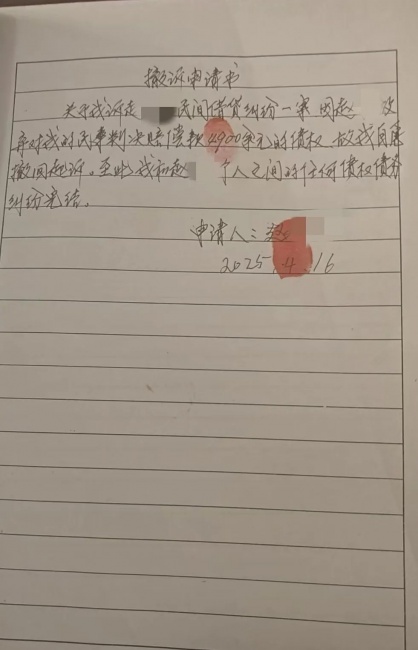 撤诉申请书
关于我诉赵 民间借贷纠纷一案因赵 放
弃对我的民事判决赔偿款4900余元的债权，故我自愿
撤回起诉。至此我和赵 个人之间的任何债权债务
纠纷完结。
申请人：赵
2025.4.16